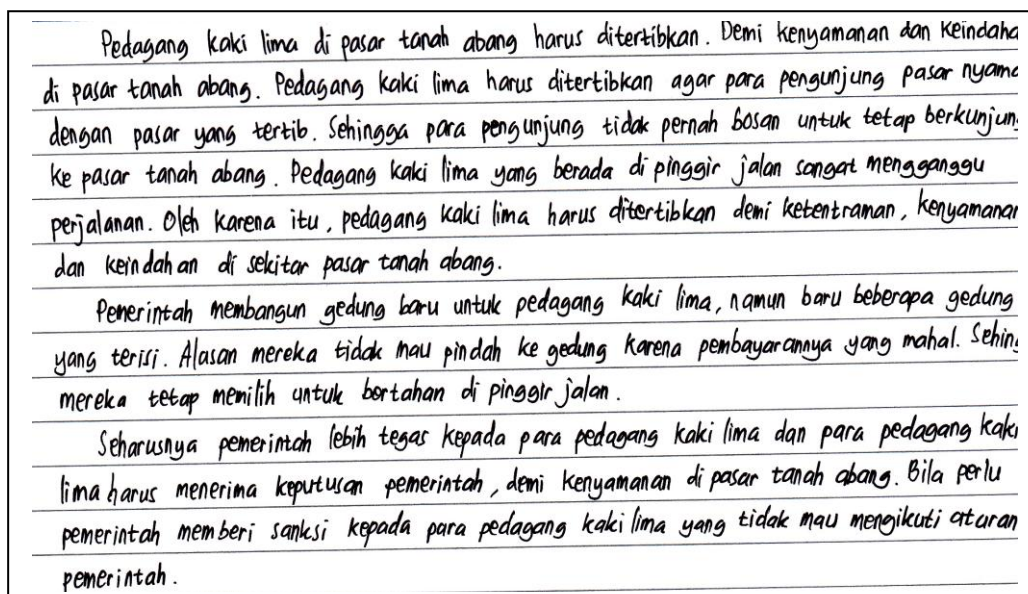 Pedagang kaki lima di pasar tanah abang harus ditertibkan. Demi kenyamanan dan keindaha
di pasar tanah abang. Pedagang kaki lima harus ditertibkan agar para pengunjung pasar nyama
dengan pasar yang tertib. Sehingga para pengunjung tidak pernah bosan untuk tetap berkunjung
ke pasar tanah abang. Pedagang kaki lima yang berada di pinggir jalan sangat mengganggu
perjalanan. Oleh karena itu, pedagang kaki lima harus ditertibkan demi ketentraman, kenyamanan
dan keindahan di sekitar pasar tanah abang.
Pemerintah membangun gedung baru untuk pedagang kaki lima, namun baru beberapa gedung
yang terisi. Alasan mereka tidak mau pindah ke gedung karena pembayarannya yang mahal. Sehing
mereka tetap memilih untuk bertahan di pinggir jalan.
Seharusnya pemerintah lebih tegas kepada para pedagang kaki lima dan para pedagang kaki
lima harus menerima keputusan pemerintah, demi kenyamanan di pasar tanah abang. Bila perlu
pemerintah memberi sanksi kepada para pedagang kaki lima yang tidak mau mengikuti aturan
pemerintah.